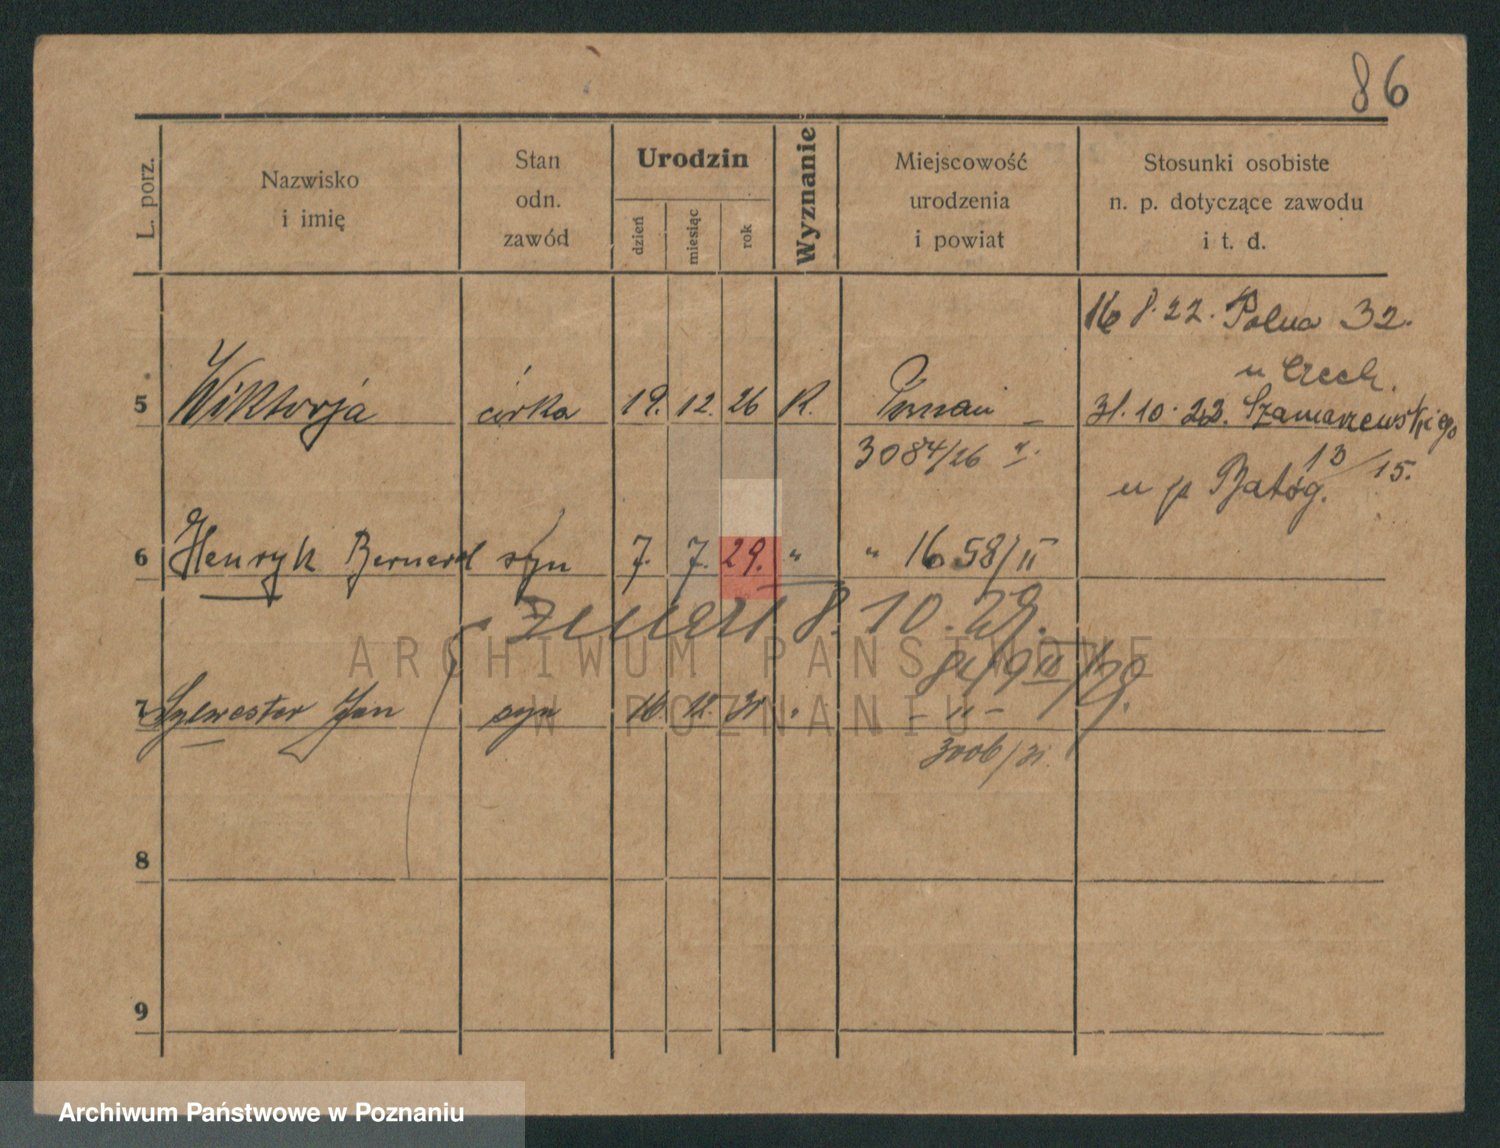 86
L. porz.
Nazwisko i imię
Stan odn. zawód
Urodzin
dzień
miesiąc
rok
Wyznanie
Miejscowość urodzenia i powiat
Stosunki osobiste n. p. dotyczące zawodu i t. d.
16 8.22. Polna 32.
u Czech.
5 Wiktorja córka 19. 12. 26 K. Poznań
31. 10. 22. Szamarzewskiego
13/15.
3084/26
u p Batóg.
6 Henryk Bernard syn 7. 7. 29. " " 1658/II
zmarł 8. 10. 29.
7 Sylwester Jan syn 16 12. 31 " - " -
3006/31.
8
9
ARCHIWUM PAŃSTWOWE
W POZNANIU
Archiwum Państwowe w Poznaniu